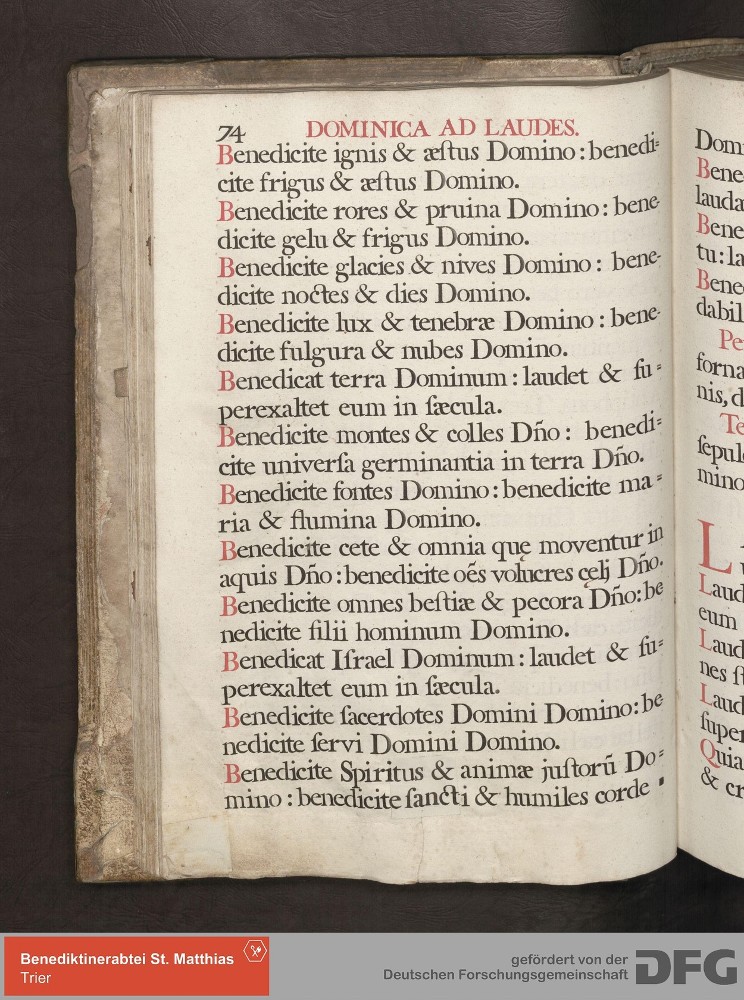 74 DOMINICA AD LAUDES.
Benedicite ignis & æſtus Domino : benedi⸗
cite frigus & æſtus Domino.
Benedicite rores & pruina Domino : bene⸗
dicite gelu & frigus Domino.
Benedicite glacies & nives Domino : bene⸗
dicite noctes & dies Domino.
Benedicite lux & tenebræ Domino : bene⸗
dicite fulgura & nubes Domino.
Benedicat terra Dominum : laudet & ſu⸗
perexaltet eum in ſæcula.
Benedicite montes & colles Dn̄o : benedi⸗
cite univerſa germinantia in terra Dn̄o.
Benedicite fontes Domino : benedicite ma⸗
ria & flumina Domino.
Benedicite cete & omnia quę moventur in
aquis Dn̄o : benedicite oēs volucres cęlj Dn̄o.
Benedicite omnes beſtiæ & pecora Dn̄o : be
nedicite filii hominum Domino.
Benedicat Iſrael Dominum : laudet & ſu⸗
perexaltet eum in ſæcula.
Benedicite ſacerdotes Domini Domino : be
nedicite ſervi Domini Domino.
Benedicite Spiritus & animæ juſtorū Do⸗
mino : benedicite ſancti & humiles corde
Dom
Bene
lauda
Bene
tu : la
Bene
dabil
Pe
forna
nis, d
Te
ſepul
mino
L
Laud
eum
Laud
nes ſt
Laud
ſuper
Quia
& cr
Benediktinerabtei St. Matthias
Trier
gefördert von der
Deutschen Forschungsgemeinschaft
DFG